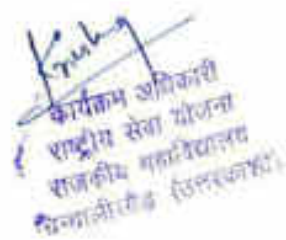 कार्यक्रम अधिकारी
राष्ट्रीय सेवा योजना
राजकीय महाविद्यालय
चिन्यालीसौड़ (उत्तरकाशी)